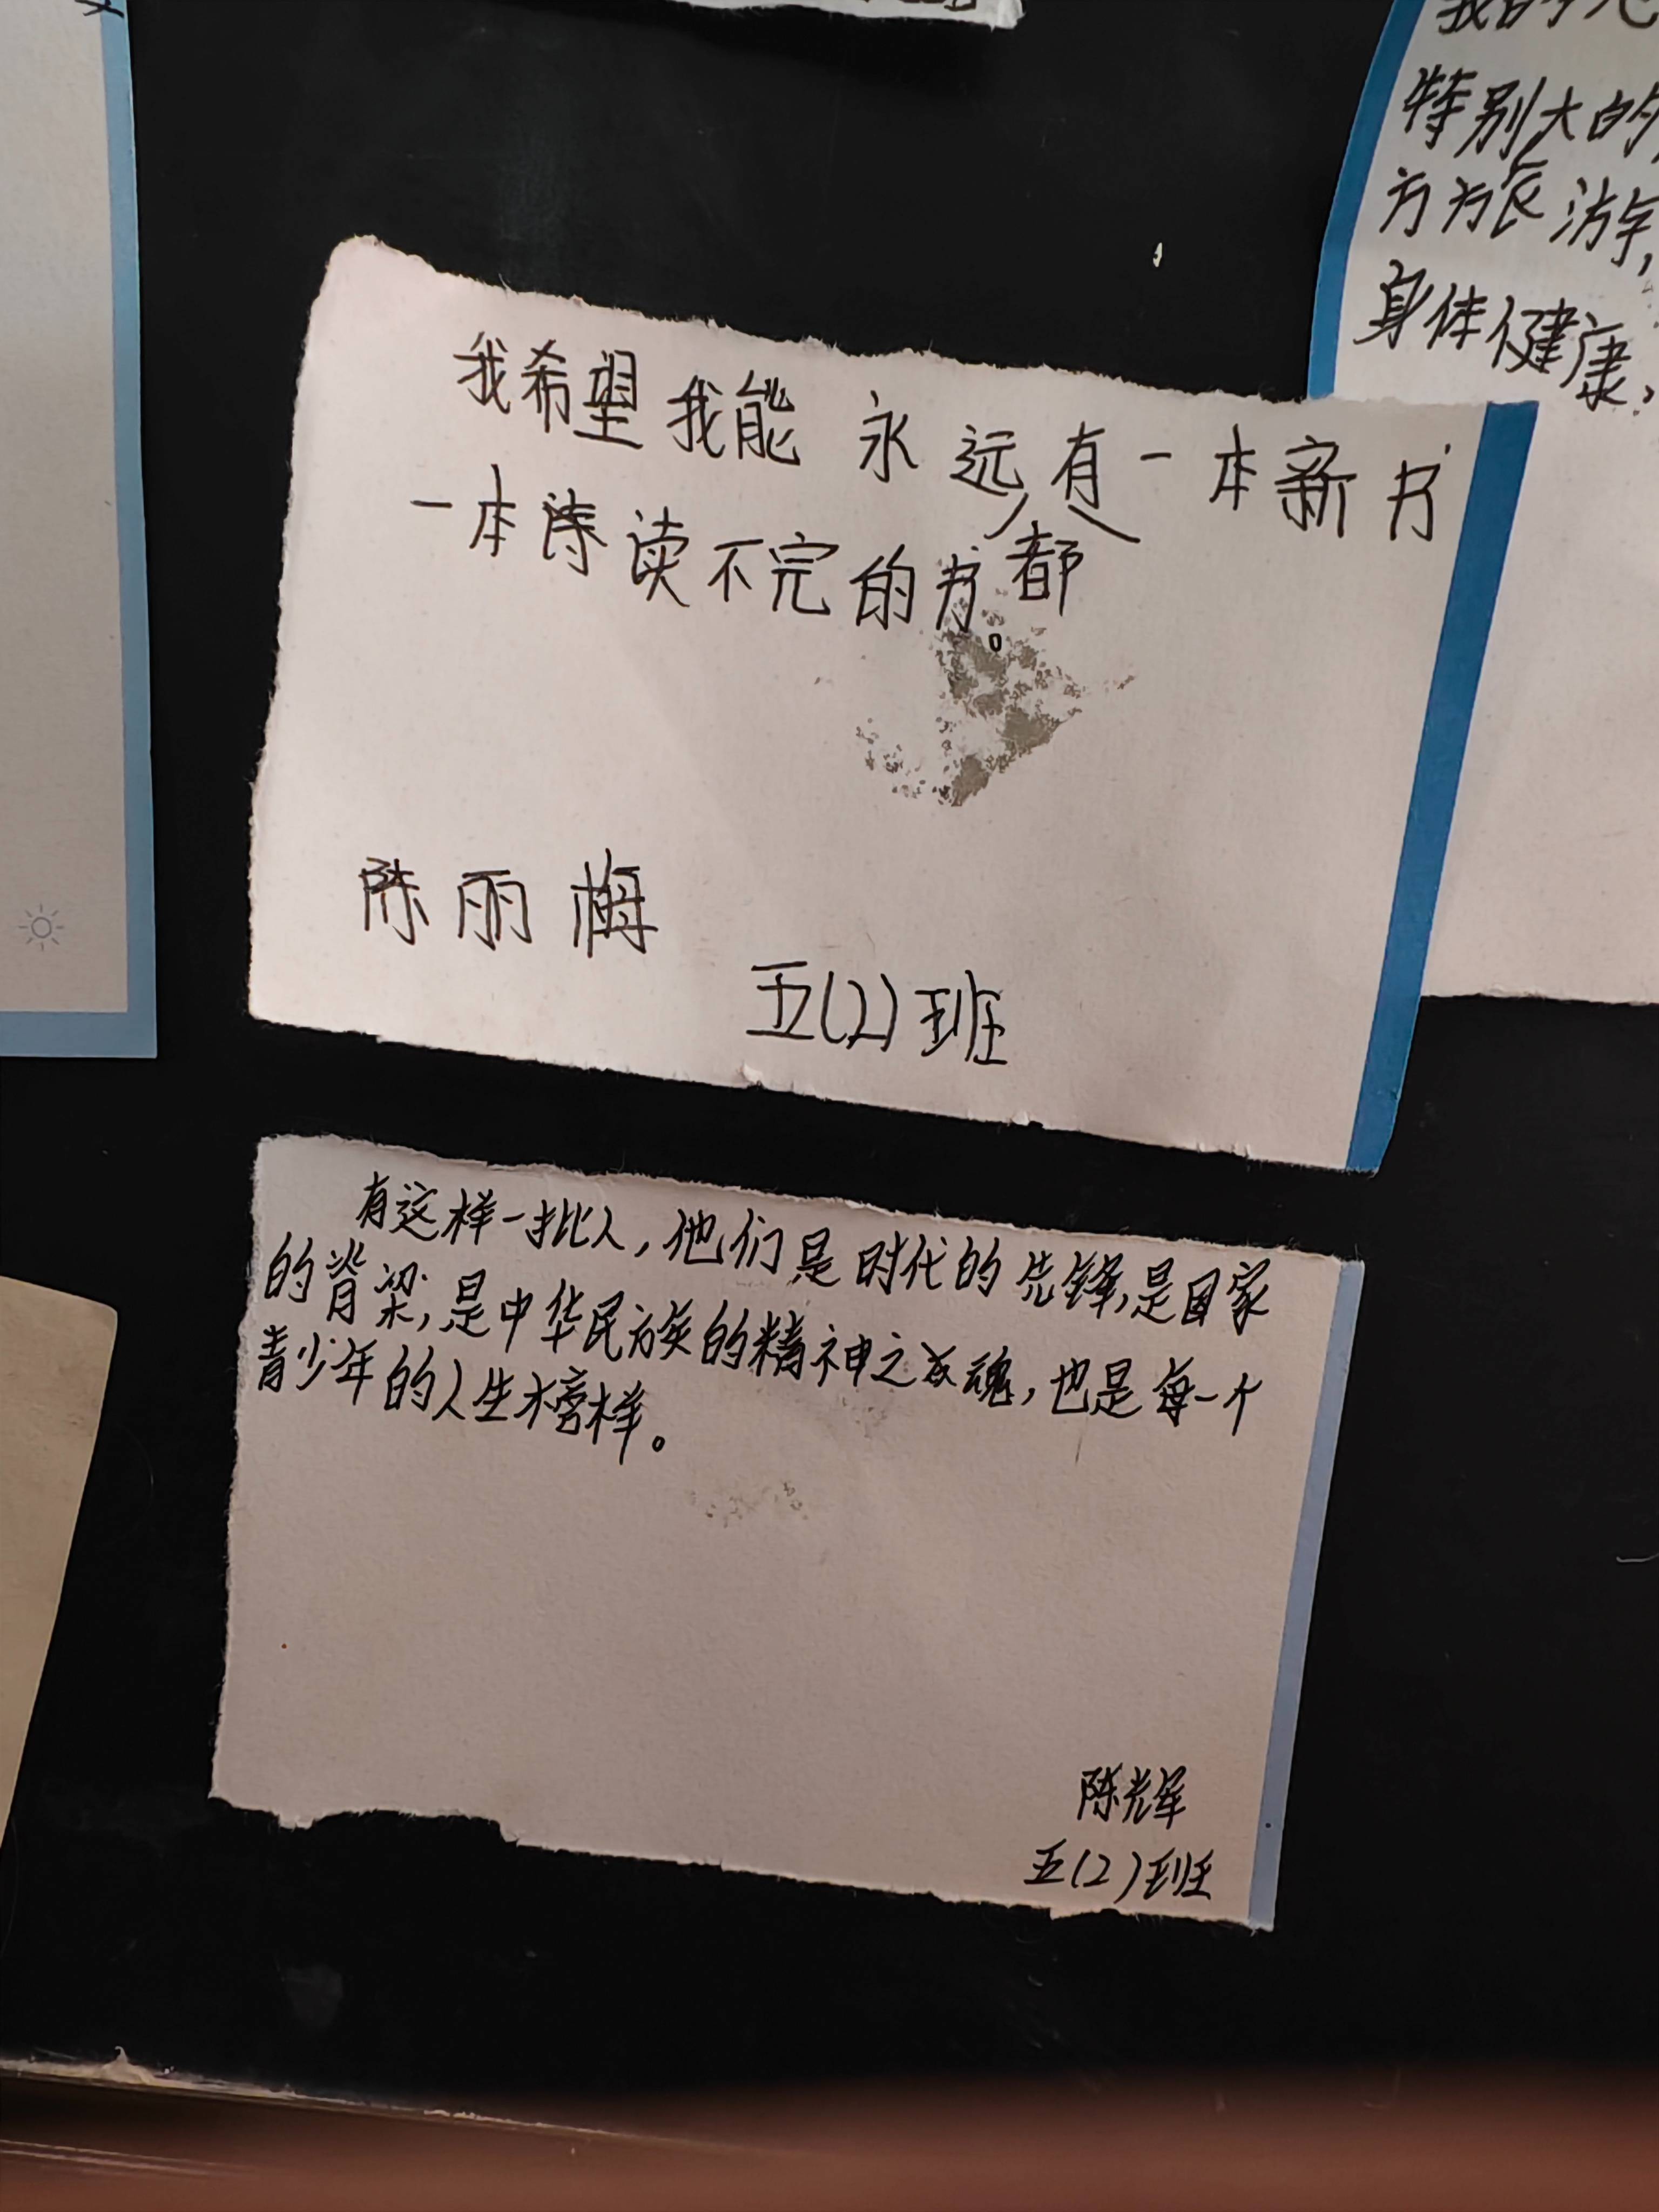 特别大的
方方旅游，
身体健康，
我希望我能永远都有一本新书
一本读不完的书。
陈丽梅
五(2)班
有这样一批人，他们是时代的先锋，是国家
的脊梁，是中华民族的精神之魂，也是每一个
青少年的人生榜样。
陈光辉
五(2)班